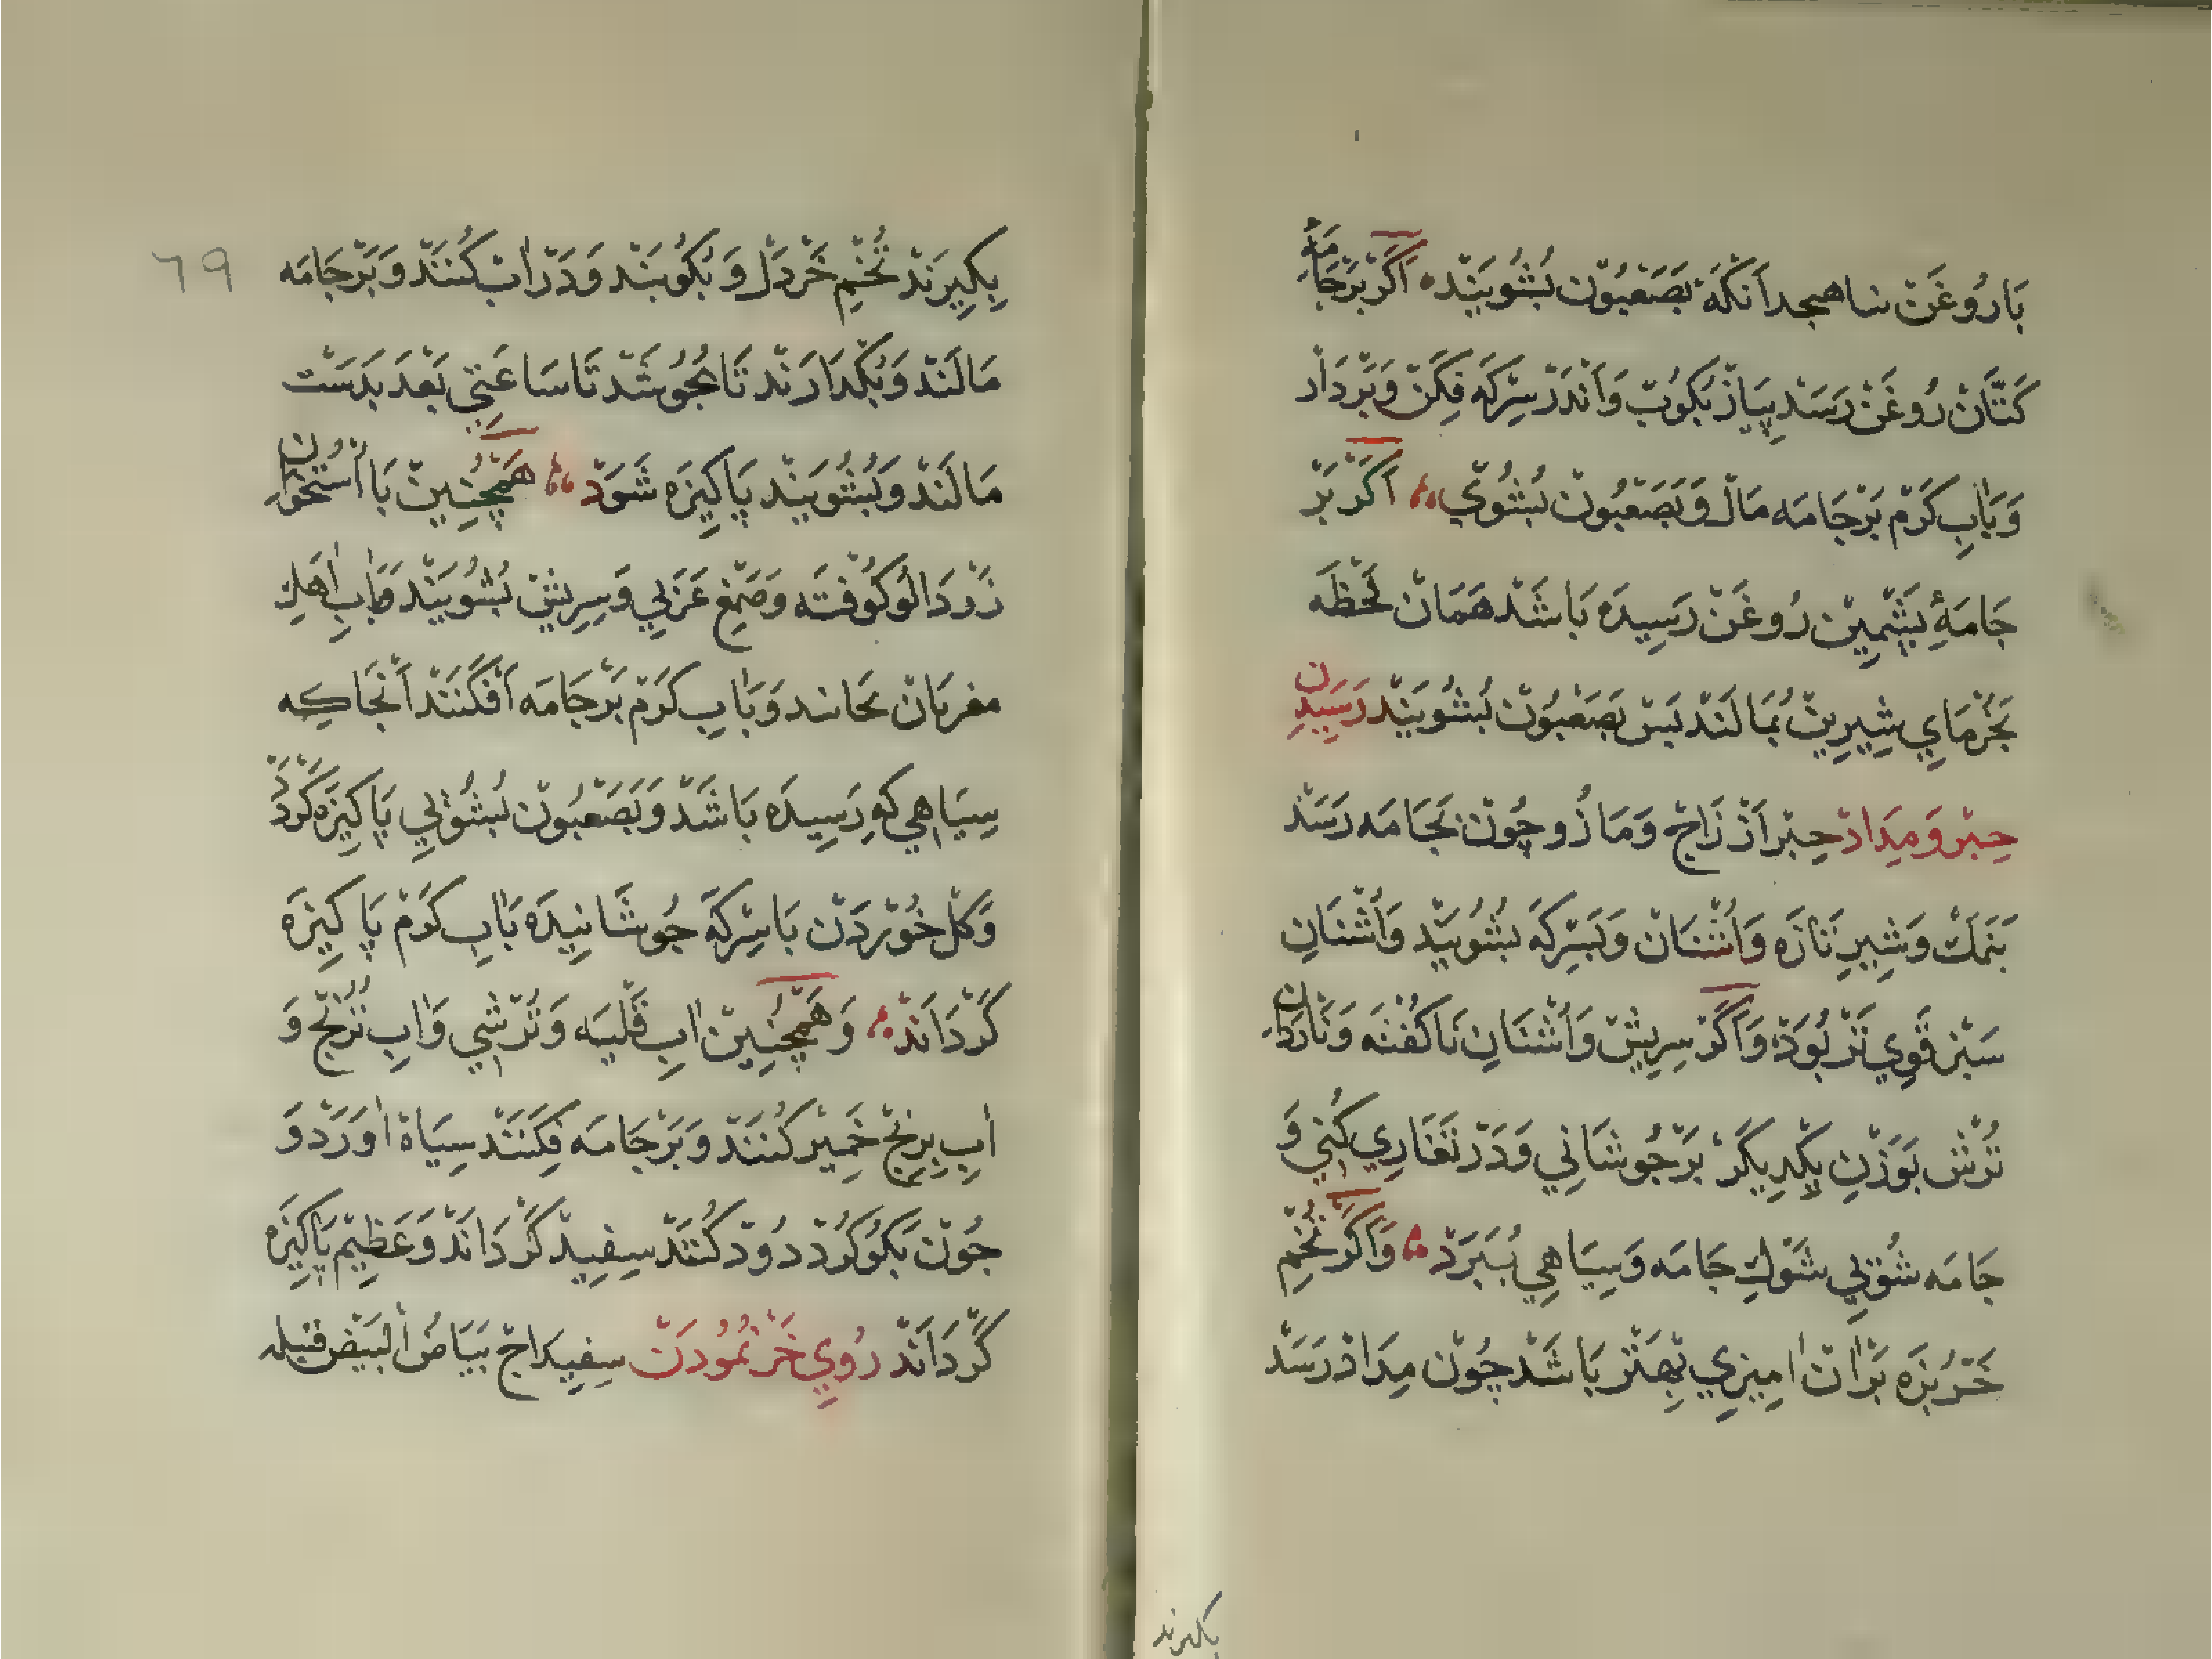 بَارُوغَنْ ساهیجد اَنْکَهْ بَصَعْبُونْ بُشُویَنْد اَکَرْ بَرْجَامَهٔ
کَتَّانْ رُوغَنْ رَسَدْ پِیَازْ بَکُوبْ وَاَنْدَرْ سِرْکَه فِکَنْ وَبَرْدَارْ
وَبَابِ کَرْمْ بَرْجَامَه مَالْ وَبَصَعْبُونْ بُشُوْیِ اَکَرْ بَرْ
جَامَهٔ پَشْمِیْنْ رُوغَنْ رَسِیدَه بَاشَدْ هَمَانْ لَحْظَه
بَخُرْمَایِ شِیرِینْ بُمَالَنْد پَسْ بَصَعْبُونْ بُشُویَنْد رَسِیدَنِ
حِبْر وَمِدَادْ حِبْر اَزْ زَاجْ وَمَازُو چُونْ بَجَامَه رَسَدْ
بَنَمَكْ وَشِیرِ تَازَه وَاُشْنَانْ وَبَسِرْکَه بشُویَنْد وَاُشْنَانِ
سَبْز قَوِی تَرْ بُوَدْ وَاَکَرْ سِرِیشْ وَاُشْنَانِ نَاکُفْتَه وَنَارْدَانِ
تُرْش بَوَزْنِ یِکْدِیکَرْ بَرْجُوشَانِي وَدَرْ تَغَارِي کُنِي وَ
جَامَه شُوْیِي شَوْخِ جَامَه وَسِیَاهِي بُبَرَدْ وَاَکَرْ تُخْمِ
خَرْبُزَه بَرْانْ اٰمِیزِي بِهْتَرْ بَاشَدْ چُونْ مِدَادْ رَسَدْ
بکیرند
٦٩
بِکِیرَنْد تُخْمِ خَرْدَلْ وَبُکُوبَنْد وَدَرْ اٰبْ کُنَنْد وَبَرْجَامَه
مَالَنْد وَبُکْدَارَنْد تَا بجُوشَدْ تَا سَاعَتِي بَعْدَ بَدَسْت
مَالَنْد وَبُشُویَنْد پَاکِیزَه شَوَدْ هَمْچُنِینْ بَا اُسْتُخْوانِ
زَرْدَالُو کُوفْتَه وَصَمْغِ عَرَبِي وَسِرِیشْ بُشُویَنْد وَبَابِ اٰهَكِ
مغربَان بَجَامَه وَبَابِ کَرْمْ بَرْجَامَه اَفْکَنَنْد اَنْجَا کِه
سِیَاهِي کِه رَسِیدَه بَاشَدْ وَبَصَعْبُونْ بُشُوْیِي پَاکِیزَه کَرْدَدْ
وَکِلْ خُوْرْدَنْ بَاسِرْکَه جُوشَانِیدَه بَابِ کَرْمْ پَاکِیزَه
کَرْدَانَدْ وَهَمْچُنِینْ اٰبِ قَلْیَه وَتُرْشِي وَاٰبِ تُرُنْجْ وَ
اٰبِ بِرِنْجْ خَمِیْر کُنَنْد وَبَرْجَامَه فِکَنَنْد سِیَاهْ اٰوَرَدْ وَ
جُونْ بَکُوکُرْدْ دُودْ کُنَنْد سِفِیدْ کَرْدَانَدْ وَعَظِیْم پَاکِیزَه
کَرْدَانَدْ رُویِ خَرْ نُمُودَنْ سِفِیدَاجْ بَیَاضُ الْبَیْض